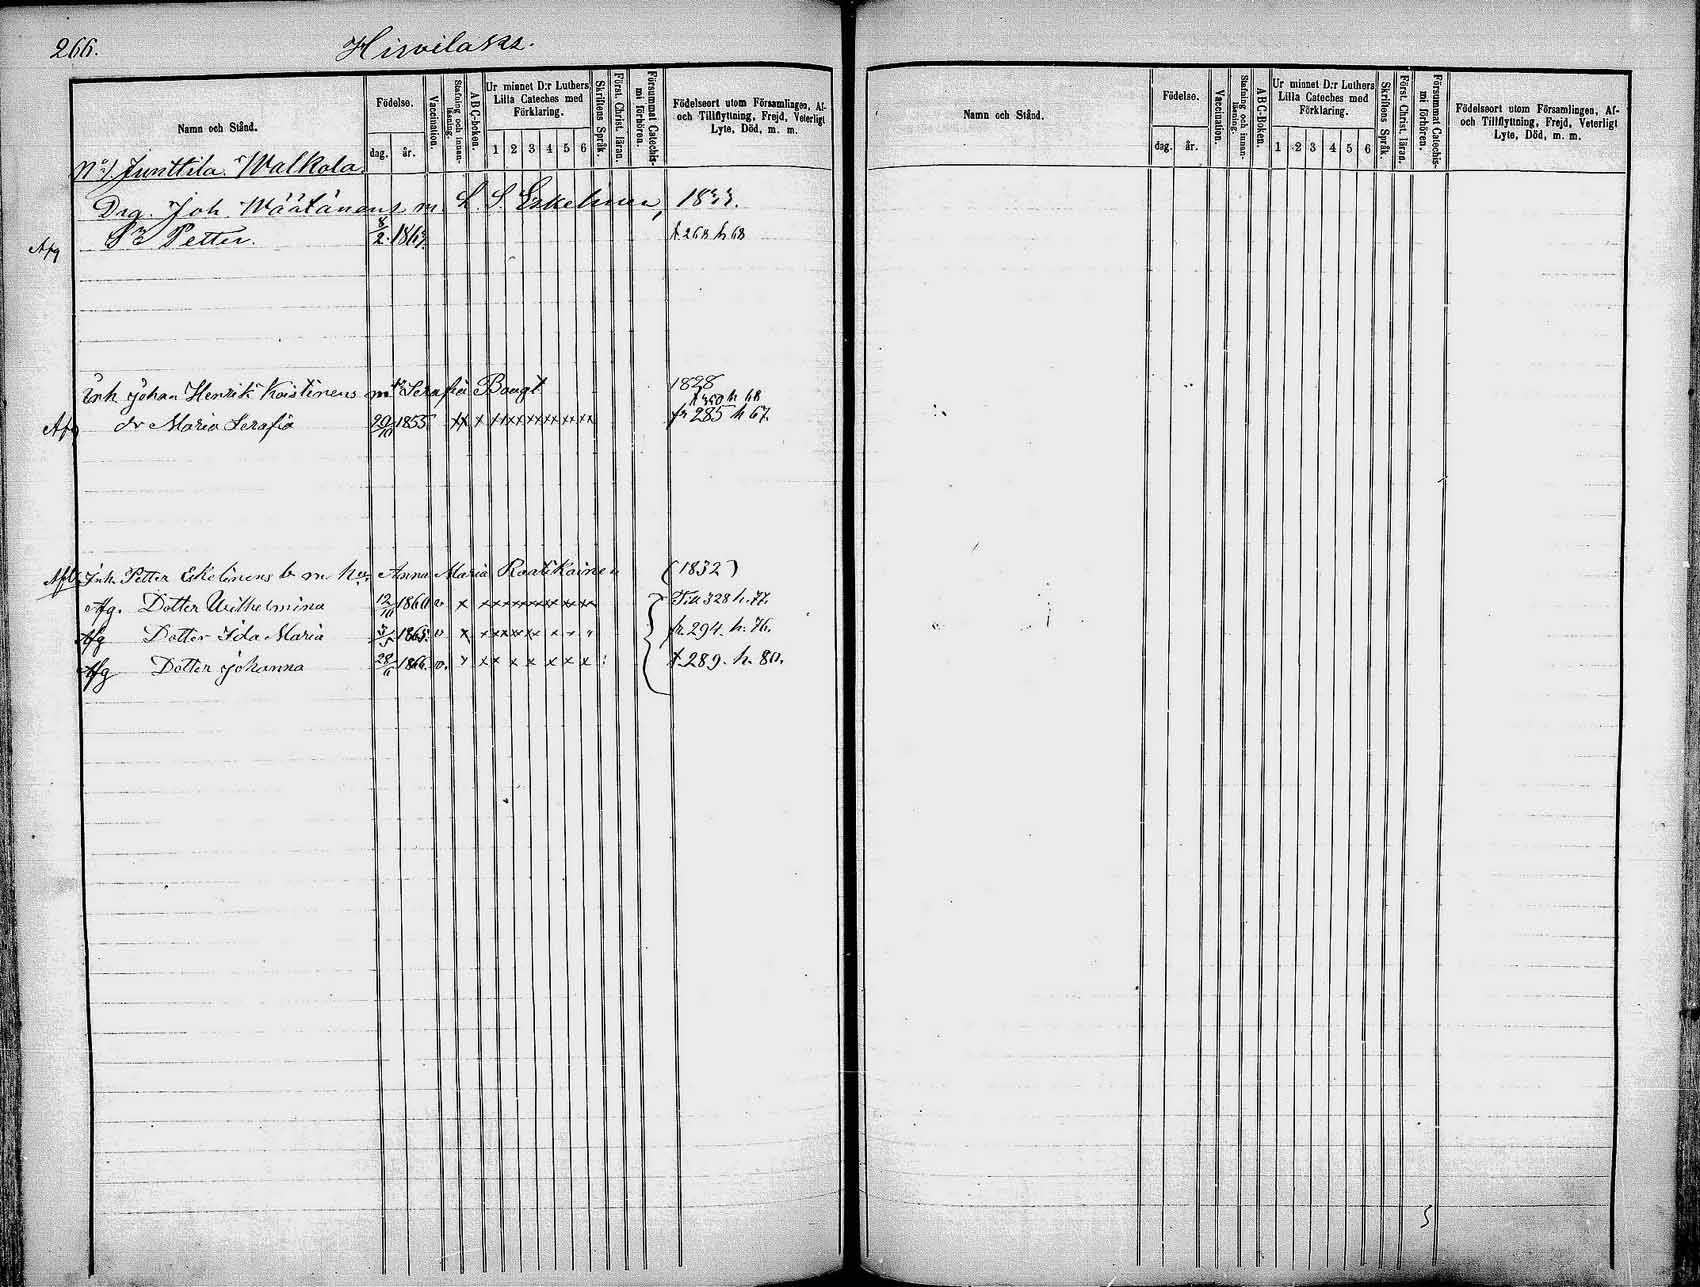 266.
Hirvilaks.
Namn och Stånd.
Födelse.
dag.
år.
Vaccination.
Stafning och innan-läsning.
ABC-boken.
Ur minnet D:r Luthers Lilla Cateches med Förklaring.
1 2 3 4 5 6
Skriftens Språk.
Först. Christ. läran.
Försummat Catechis-mi förhören.
Födelseort utom Församlingen, Af- och Tillflyttning, Frejd, Veterligt Lyte, Död, m. m.
No 1 Junttila Walkola
Drg. Joh. Väätänens m. L. S. Eskelinen, 1833.
Afg Sn Petter. 8/2. 186 f. 268 h 68
Inh Johan Henrik Koistinens m Serafia Bougt 1828
f 350 h 68
Afg dr Maria Serafia 29/10 1855 xx x xx xx xx xx xx xx fr 285 h 67.
Afl. Inh. Petter Eskelinens m hu. Anna Maria Raatikainen (1832)
Afg. Dotter Wilhelmina 12/10 1860 v x x x x x x x x x x Till 328 h. 77.
Afg Dotter Ida Maria 3/5 1863. v x x x x x x x x fr. 294. h. 76.
Afg Dotter Johanna 28/6 1866. v. x x x x x x x x f. 289. h. 80.
Namn och Stånd.
Födelse.
dag.
år.
Vaccination.
Stafning och innan-läsning.
ABC-Boken.
Ur minnet D:r Luthers Lilla Cateches med Förklaring.
1 2 3 4 5 6
Skriftens Språk.
Först. Christ. läran.
Försummat Catechis-mi förhören.
Födelseort utom Församlingen, Af- och Tillflyttning, Frejd, Veterligt Lyte, Död, m. m.